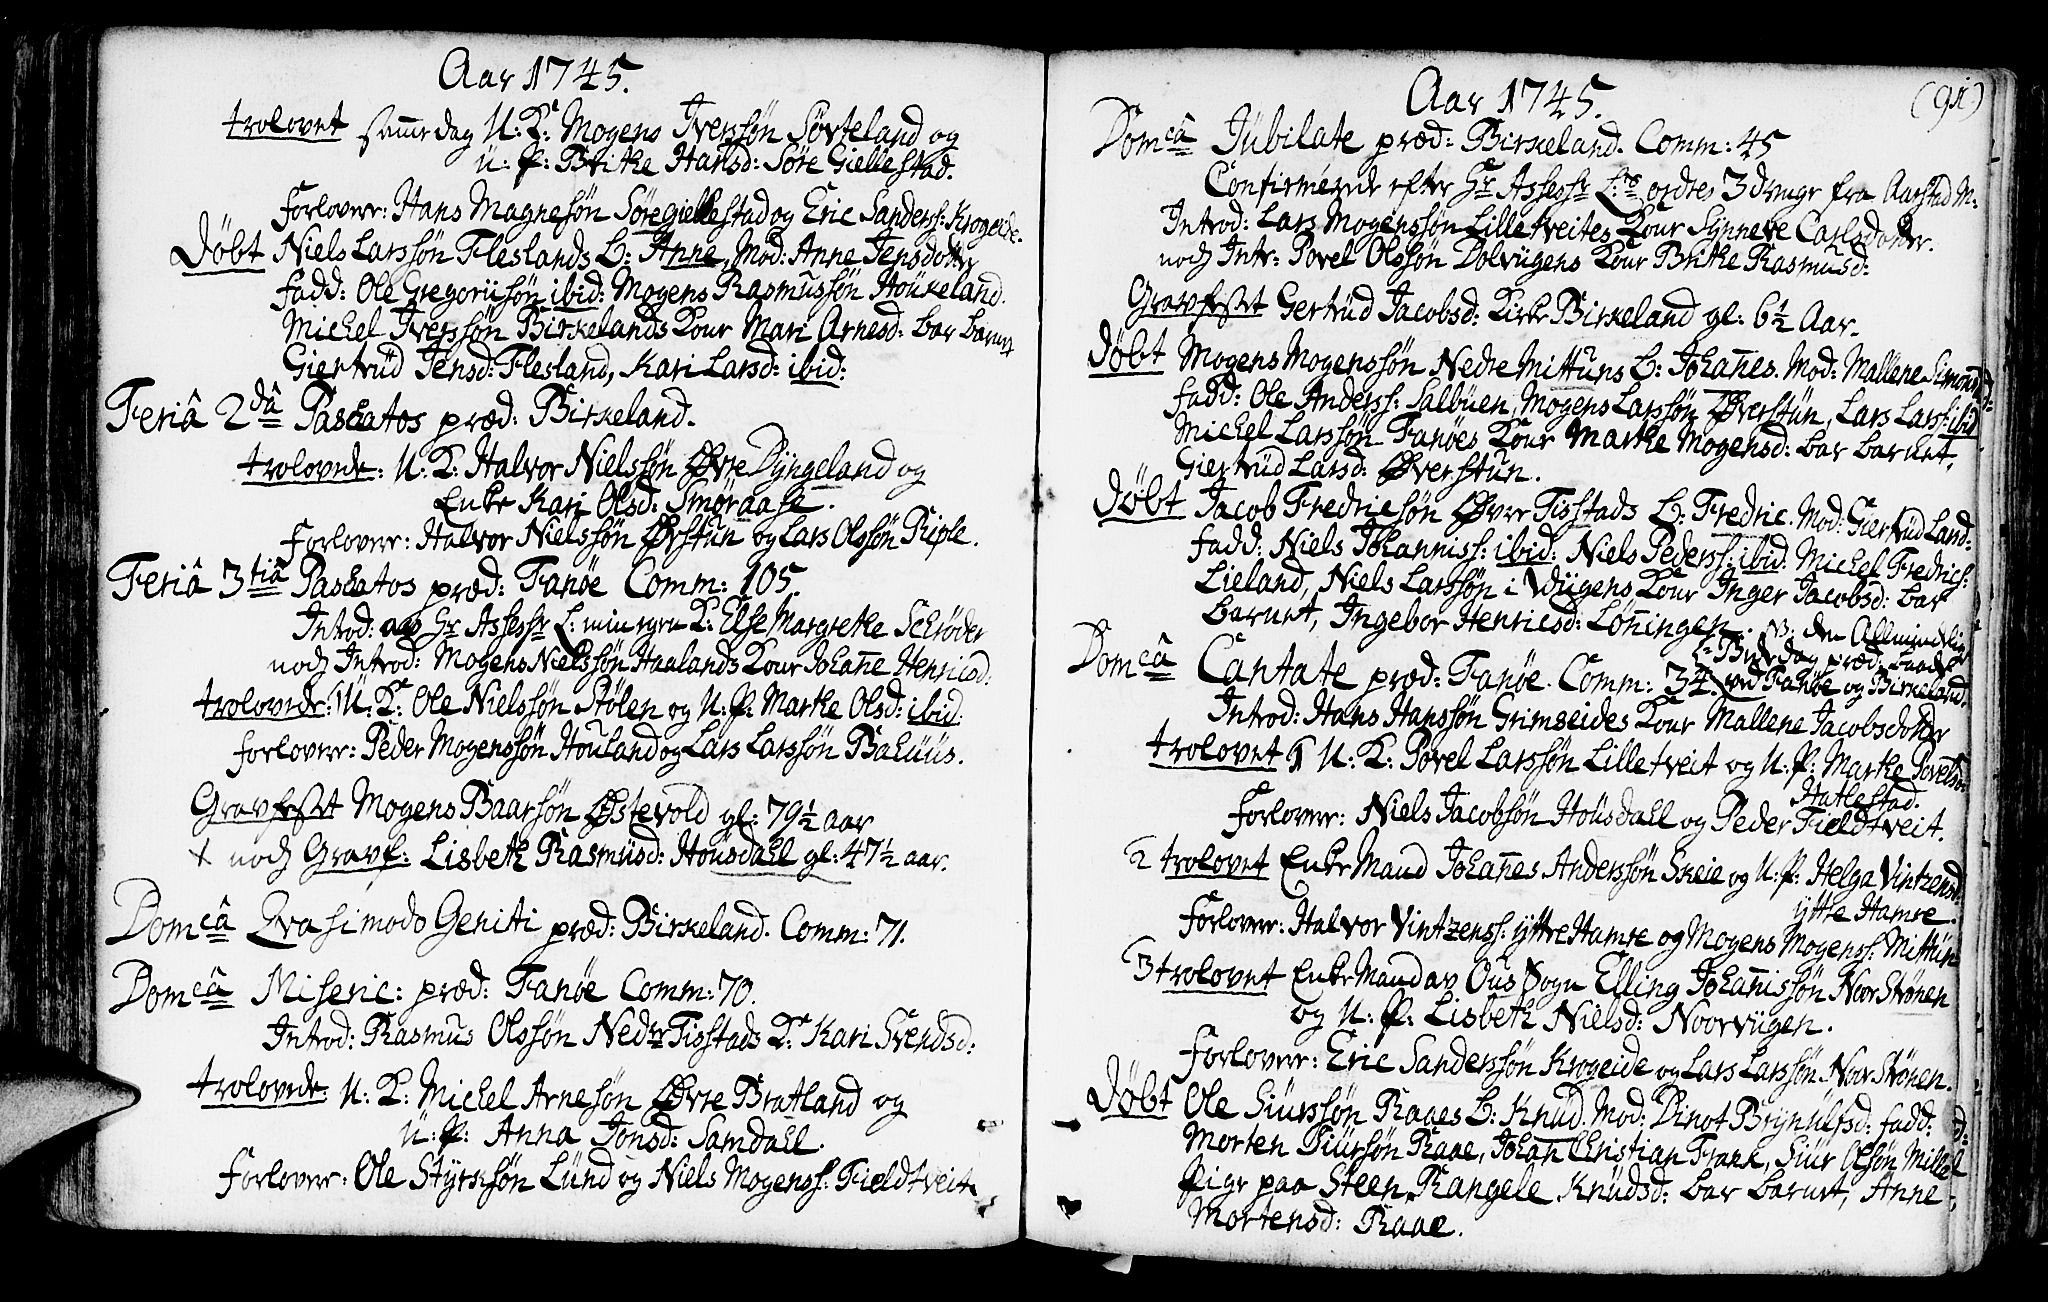 Aar 1745.
trolovet samme dag U: K: Mogens Iverssøn Søvteland og
u: P: Brithe Hansd: Søre Giellestad.
Forlovere: Hans Magnesøn Søregiellestad og Eric Sanders: Krogeide.
Døbt Niels Larssøn Fleslands B: Anne, Mod: Anne Jensdotter
Fadd: Ole Gregoriisøn ibid: Mogens Rasmussøn Houkeland.
Michel Iverssøn Birkelands Kone Mari Arnesd: bar barnet
Giertrüd Jensd: Flesland, Kari Larsd: ibid:
Feriâ 2dâ Paschatos præd: Birkeland.
trolovede: U: K: Halvor Nielssøn Øvre Dyngeland og
Enke Kari Olsd: Smøraase.
Forlovere: Halvor Nielssøn Øvstun og Lars Olssøn Riple.
Feriâ 3tiâ Paschatos præd: Fanøe Comm: 105.
Introd: Hr Assessr L: min egen K: Else Margrethe Schrøder
noch Introd: Mogens Nielssøn Haalands Kone Johanne Henricsd:
trolovede: U: K: Ole Nielssøn Stølen og U: P: Marthe Olsd: ibid
Forlovere: Peder Mogenssøn Houland og Lars Larssøn Bahuus.
Gravfestet Mogens Baarsøn Østevold gl: 79½ aar
+ noch Gravf: Lisbeth Rasmusd: Housdahl gl: 47½ aar.
Domcâ Qvasimodo Geniti præd: Birkeland. Comm: 71.
Domcâ Miseric: præd: Fanøe Comm: 70.
Introd: Rasmus Olssøn Nedre Tisstads K: Kari Svendsd:
trolovede: U: K: Michel Arnesøn Øvre Bratland og
U: P: Anna Jonsd: Samdahl.
Forlovere: Ole Styrcsøn Lünd og Niels Mogenss: Fieldtveit
Aar 1745. (91)
Domcâ Jübilate præd: Birkeland. Comm: 45
Confirmerede efter Hr Assessr L: ordres 3 drenge fra Aarstad M.
Introd: Lars Mogenssøn Lilletveites Kone Synneve Carlsdotter.
noch Intr: Povel Olssøn Dolvügens Kone Brithe Rasmusd:
Gravfestet Gertrüd Jacobsd: Kirke Birkeland gl: 6½ Aar.
Døbt Mogens Mogenssøn Nedre Mittuns B: Johannes. Mod: Mallene Simonsd:
Fadd: Ole Anderss: Salbuen, Mogens Larssøn Øverstun, Lars Larss: ibid
Michel Larssøn Fanøes Kone Marthe Mogensd: bar barnet,
Giertrüd Larsd: Øverstun.
Døbt Jacob Fredricsøn Øvre Tisstads B: Fredric. Mod: Giertrüd Land:
Fadd: Niels Johanniss: ibid: Niels Pederss: ibid. Michel Fredrics:
Lieland, Niels Larssøn i Vügens Kone Inger Jacobsd: bar
barnet, Ingebor Henricsd: Løningen. NB: den Allmindelig
Bededag præd: baade
Domcâ Cantate præd: Fanøe. Comm: 34. ved Fanøe og Birkeland.
Introd: Hans Hanssøn Grimseides Kone Mallene Jacobsdotter
trolovet 1 U: K: Povel Larssøn Lilletveit og U: P: Marthe Povelsd:
Hatlestad.
Forlovere: Niels Jacobsøn Housdahl og Peder Fieldtveit.
2 trolovet Enke Mand Johannes Anderssøn Skeie og U: P: Helga Vintzensd:
ytre Hamre.
Forlovere: Halvor Vintzenss: ytre Hamre og Mogens Mogenss: Mittün
3 trolovet Enke Mand av Ous Sogn Elling Johannissøn Noor Strønen
og U: P: Lisbeth Nielsd: Noorvügen.
Forlovere: Eric Sanderssøn Krogeide og Lars Larssøn Noor Strønen.
Døbt Ole Siurssøn Raaes B: Knud. Mod: Dinot Brynulfsd: Fadd:
Morten Siurssøn Raae, Johan Christian Frank, Siur Olsøn Milde
Pige paa Steen, Rangele Knüdsd: bar barnet, Anne
Mortensd: Raae.